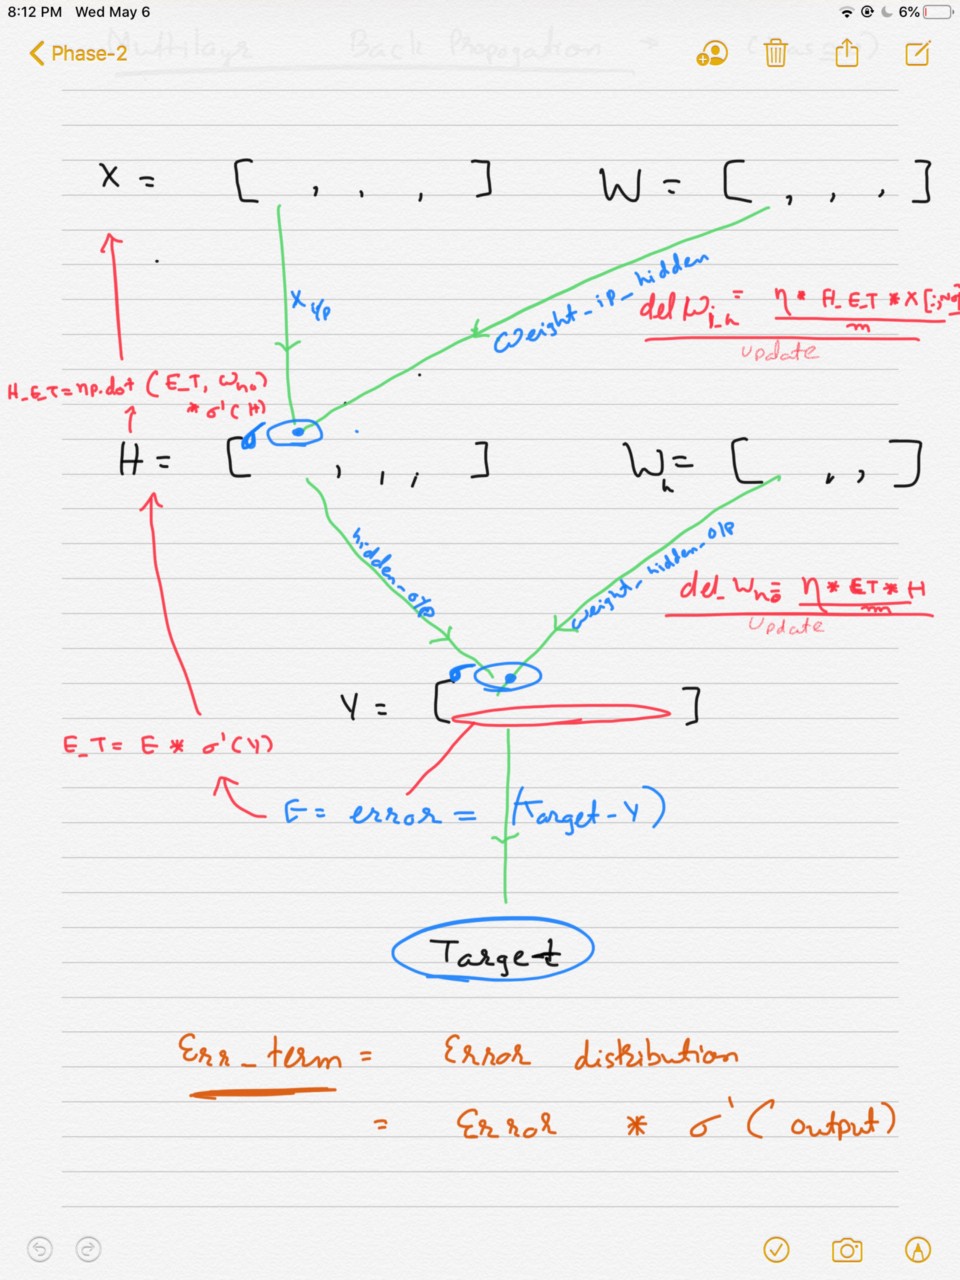 8:12 PM Wed May 6
6%
Phase-2
Multilayr Back Propogation
X = [ , , , ]
W = [ , , , ]
X i/p
Weight_ip_hidden
del W i_h = η * H_E_T * X[:,No
m
update
H_E_T = np.dot (E_T, W ho)
* σ'(H)
σ
H = [ , , , ]
W h = [ , , ]
hidden_o/p
weight_hidden_o/p
del_W ho = η * ET * H
m
Update
σ
Y = [ ]
E_T = E * σ'(Y)
E = error = (Target-Y)
Target
Err_term = Error distribution
= Error * σ'(output)